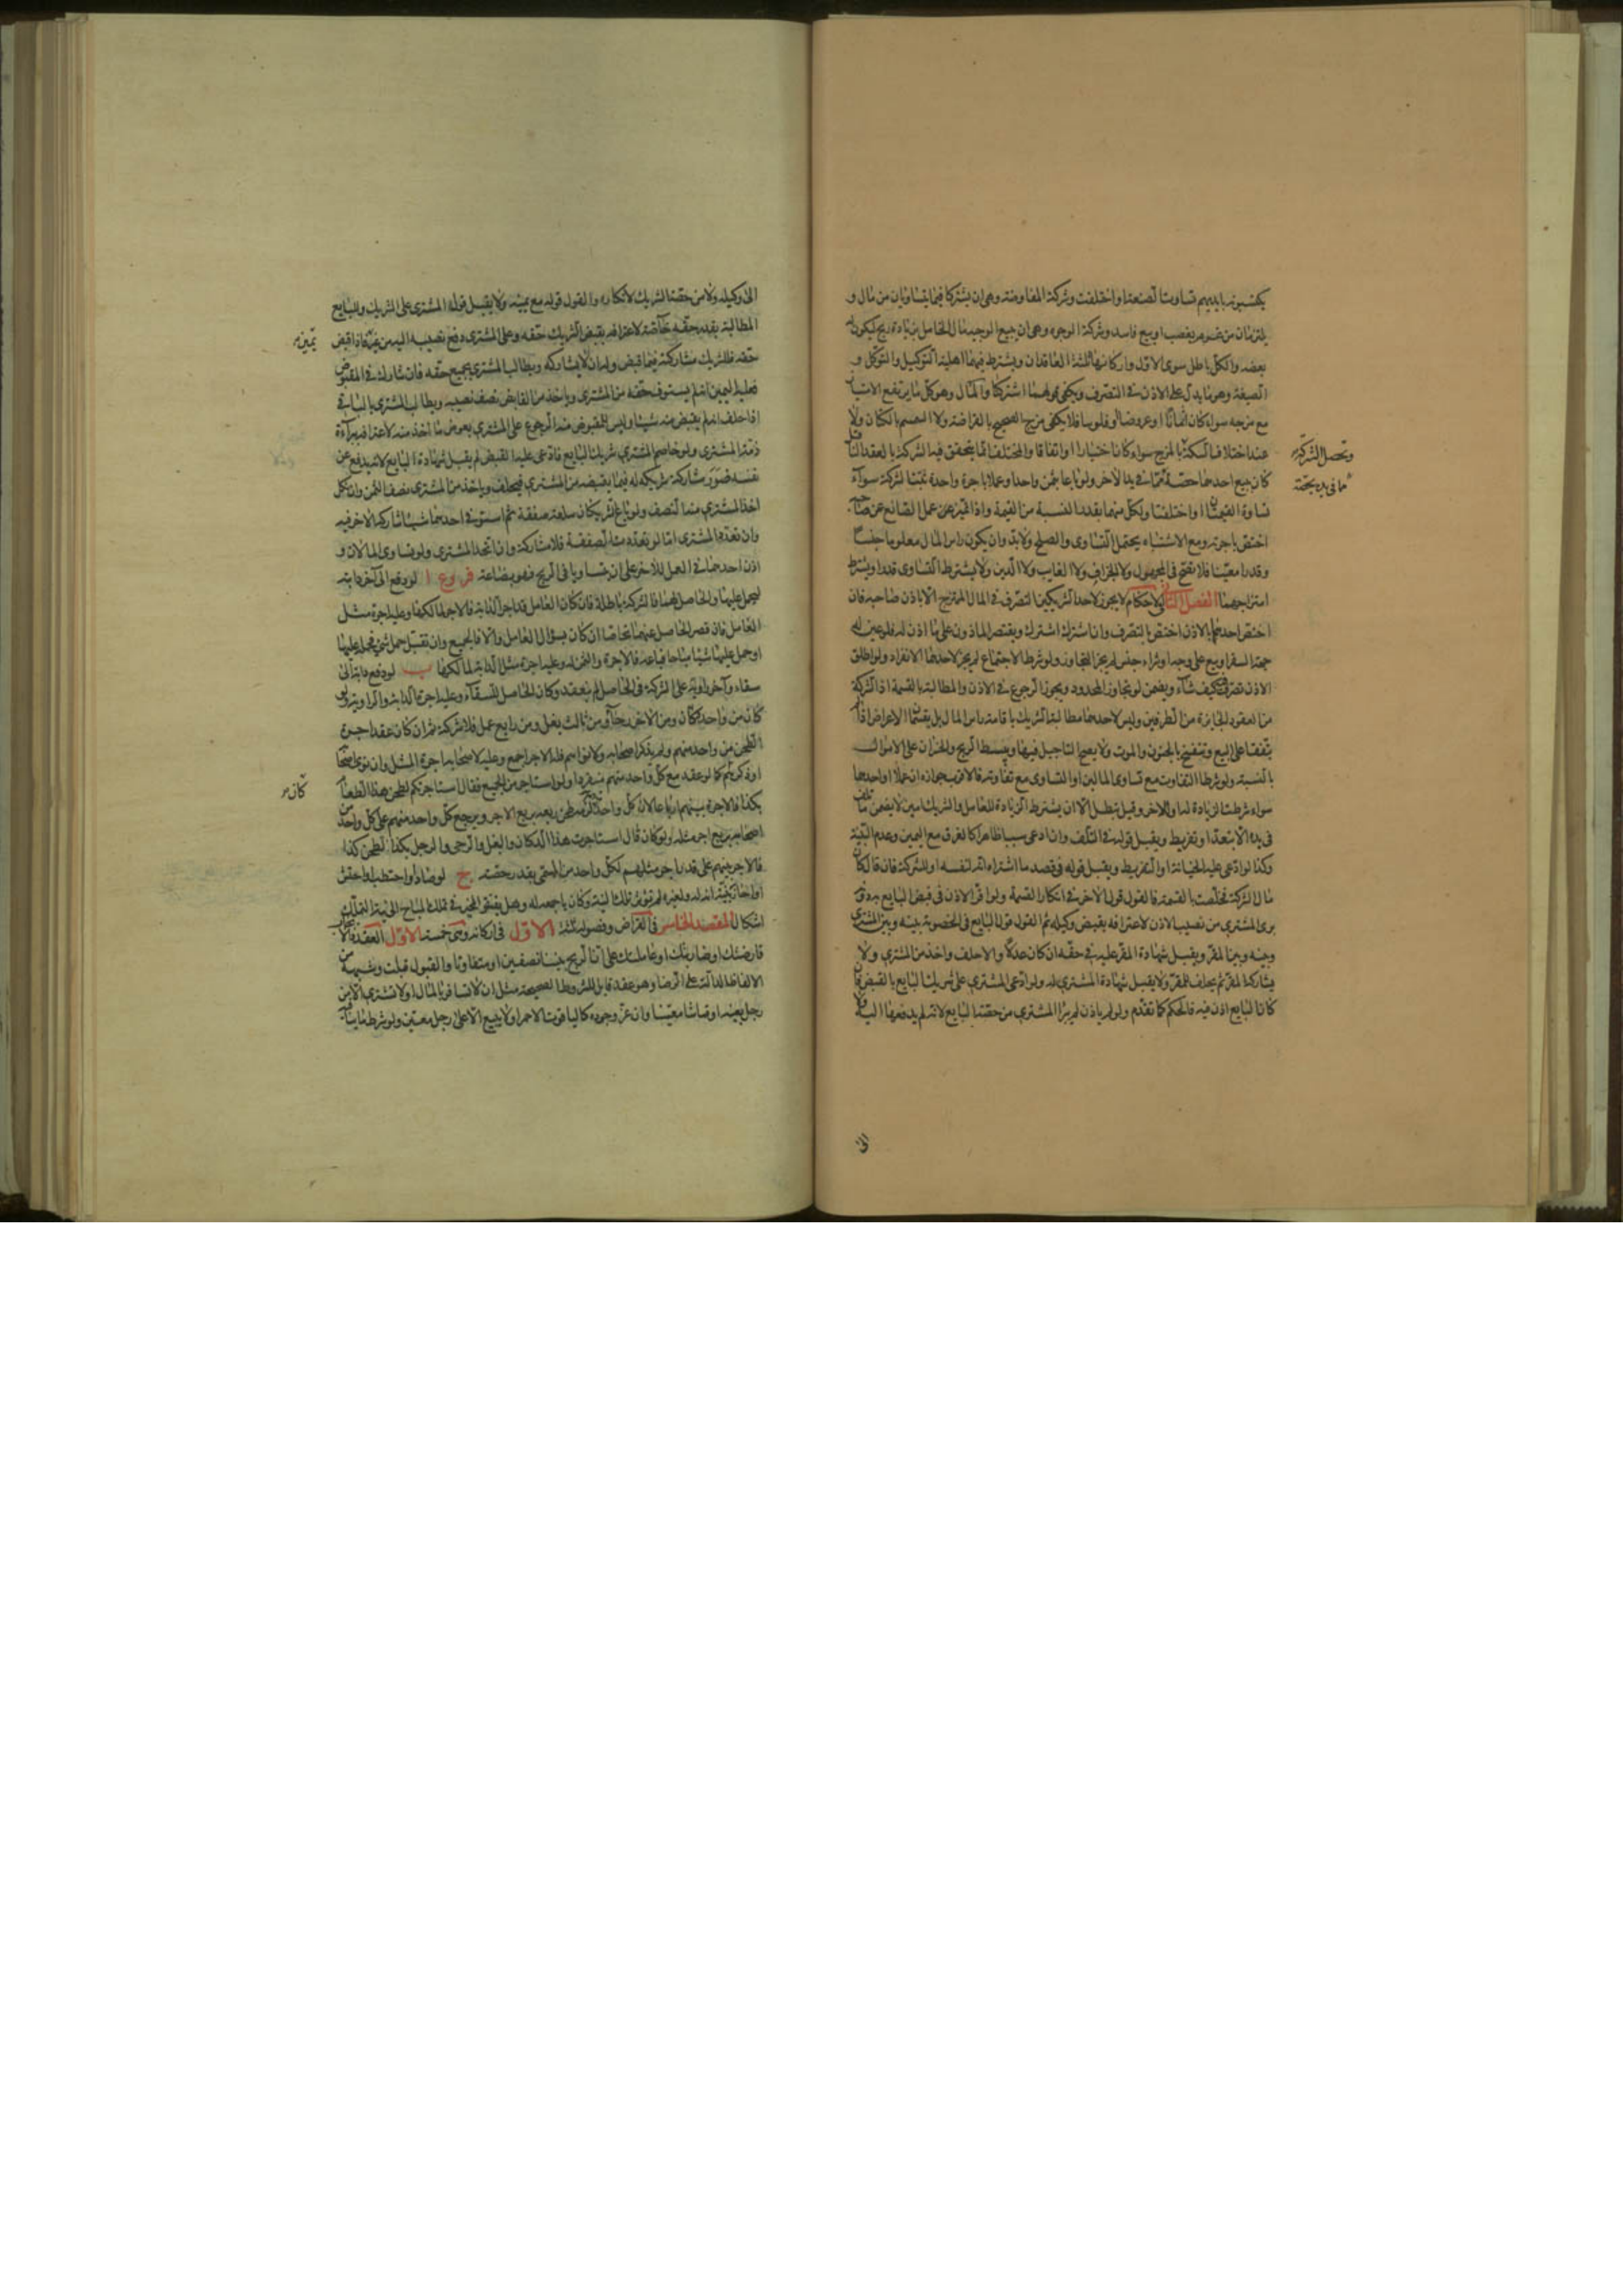 يكتسبونه بايديهم تساوت الصنعة او اختلفت وشركة المفاوضة وهي ان يشتركا فيما يتساويان من مال و
يلتزمان من غرم بغصب او بيع فاسد وشركة الوجوه وهي ان يبيع الوجيه مال الخامل بزيادة ربح ليكون له
بعضه والكل باطل سوى الاول واركانها ثلثة العاقدان ويشترط فيهما اهلية التوكيل والتوكل و
الصيغة وهو ما يدل على الاذن في التصرف ويكفي قولهما اشتركنا والمال وهو كل ما يرتفع الامتياز
مع مزجه سواء كان اثمانا او عروضا او فلوسا فلا يكفي مزج الصحيح بالقراضة ولا السمسم بالكتان ولا
عند اختلاف السكة بالمزج سواء كان اختيارا او اتفاقا والمختلف انما يتحقق فيه الشركة بالعقد الناقل
وتحصل الشركة
كان يبيع احدهما حصة مما في يده للاخر ولو باعا بثمن واحد او عملا باجرة واحدة ثبتت الشركة سواء
مما في يده بحصة
تساوت القيمتان او اختلفتا ولكل منهما بقدر النسبة من القيمة واذا تميز عن عمل الصانع عن صاحبه
اختص باجرته ومع الاشتباه يحتمل التساوي والصلح ولا بد وان يكون راس المال معلوما جنسا
وقدرا معينا فلا تصح في المجهول ولا الجزاف ولا الغايب ولا الدين ولا يشترط التساوي قدرا ويشترط
امتزاجهما الفصل الثاني في الاحكام لا يجوز لاحد الشريكين التصرف في المال الممتزج الا باذن صاحبه فان
اختص احدهما بالاذن اختص بالتصرف وان اشترك اشترك ويقتصر الماذون على ما اذن له فلو عين له
جهة السفر او بيع على وجه او شراء جنس لم يجز التجاوز ولو شرط الاجتماع لم يجز لاحدهما الانفراد ولو اطلق
الاذن تصرف كيف شاء ويضمن لو تجاوز المحدود ويجوز الرجوع في الاذن والمطالبة بالقسمة اذ الشركة
من العقود الجايزة من الطرفين وليس لاحدهما مطالبة الشريك باقامة راس المال بل يقتسمان الاعراض اذا لم
يتفقا على البيع وتنفسخ بالجنون والموت ولا يصح التاجيل فيها ويبسط الربح والخسران على الاموال
بالنسبة ولو شرطا التفاوت مع تساوي المالين او التساوي مع تفاوته فالاقرب جوازه ان عملا او احدهما
سواء شرطت الزيادة له او للاخر وقيل تبطل الا ان يشترط الزيادة للعامل والشريك امين لا يضمن ما تلف
في يده الا بتعد او تفريط ويقبل قوله في التلف وان ادعى سببا ظاهرا كالغرق مع اليمين وعدم البينة
وكذا لو ادعى عليه الخيانة او التفريط ويقبل قوله في قصد ما اشتراه انه لنفسه او للشركة فان قال كان
مال الشركة فخلصت بالقسمة فالقول قول الاخر في انكار القسمة ولو اقر الاذن في قبض البايع به دونه
برئ المشتري من نصيب الاذن لاعترافه بقبض وكيله ثم القول قول البايع في الخصومة بينه وبين المشتري
وبينه وبين المقر ويقبل شهادة المقر عليه في حقه ان كان عدلا والا حلف واخذ من المشتري ولا
يشاركه المقر ثم يحلف للمقر ولا يقبل شهادة المشتري له ولو ادعى المشتري على شريك البايع بالقبض فان
كان البايع اذن فيه فالحكم كما تقدم ولو لم ياذن لم يبرا المشتري من حصة البايع لانه لم يدفعها اليه ولا
الى
الى وكيله ولا من حصة الشريك لانكاره والقول قوله مع يمينه ولا يقبل قول المشتري على الشريك وللبايع
المطالبة بقدر حقه خاصة لاعترافه بقبض الشريك حقه وعلى المشتري دفع نصيبه اليه من غير فاذا قبض
يمين
حقه فللشريك مشاركته فيما قبض وله ان لا يشاركه ويطالب المشتري بجميع حقه فان شارك في المقبوض
فعليه اليمين انه لم يستوف حقه من المشتري وياخذ من القابض نصف نصيبه ويطالب المشتري بالباقي
اذا حلف انه لم يقبض منه شيئا وليس للمقبوض منه الرجوع على المشتري بعوض ما اخذ منه لاعترافه ببراءة
ذمة المشتري ولو خاصم المشتري شريك البايع فادعى عليه القبض لم يقبل شهادة البايع لانه يدفع عن
نفسه ضرر مشاركة شريكه له فيما يقبضه من المشتري فيحلف وياخذ من المشتري نصف الثمن وان نكل
اخذ المشتري منه النصف ولو باع الشريكان سلعة صفقة ثم استوفى احدهما شيئا شاركه الاخر فيه
وان تعدد المشتري اما لو تعددت الصفقة فلا مشاركة وان اتحد المشتري ولو تساوى المالان و
اذن احدهما في العمل للاخر على ان يتساويا في الربح فهو بضاعة فروع ا لو دفع الى آخر دابة
ليحمل عليها والحاصل لهما فالشركة باطلة فان كان العامل قد اجر الدابة فالاجر لمالكها وعليه اجرة مثل
العامل فان قصر الحاصل عنهما تحاصا ان كان بسؤال العامل والا فالجميع وان تقبل حمل شيء فحمله عليها
او حمل عليها شيئا مباحا فباعه فالاجرة والثمن له وعليه اجرة مثل الدابة لمالكها ب لو دفع دابة الى
سقاء وآخر راوية على الشركة في الحاصل لم ينعقد وكان الحاصل للسقاء وعليه اجرة الدابة والراوية ولو
كان من واحد دكان ومن الاخر رحا ومن ثالث بغل ومن رابع عمل فلا شركة ثم ان كان عقد اجرة
الطحن من واحد منهم ولم يذكر اصحابه ولا نواهم فله الاجر اجمع وعليه لاصحابه اجرة المثل وان نوى اصحابه
او ذكرهم كان كما لو عقد مع كل واحد منهم منفردا ولو استاجر من الجميع فقال استاجرتكم لطحن هذا الطعام
كان
بكذا فالاجرة بينهم ارباعا لان كل واحد قد لزمه طحن ربعه بربع الاجر ويرجع كل واحد منهم على كل واحد من
اصحابه بربع اجر مثله ولو كان قال استاجرت هذا الدكان والبغل والرحى والرجل بكذا لطحن كذا
فالاجر بينهم على قدر اجر مثلهم لكل واحد من المسمى بقدر حصته ج لو صاد او احتطب او احتش
او احاز بنية انه له ولغيره لم تؤثر تلك النية وكان باجمعه له وهل يفتقر المحيز في تملك المباح الى نية التملك
اشكال المقصد الخامس في القراض وفصوله ثلثة الاول في اركانه وهي خمسة الاول العقد فالايجاب
قارضتك او ضاربتك او عاملتك على ان الربح بيننا نصفين او متفاوتا والقبول قبلت وشبهه من
الالفاظ الدالة على الرضا وهو عقد قابل للشروط الصحيحة مثل ان لا تسافر بالمال او لا تشتري الا من
رجل بعينه او قماشا معينا وان عز وجوده كالياقوت الاحمر او لا يبيع الا على رجل معين ولو شرط ما ينافيه